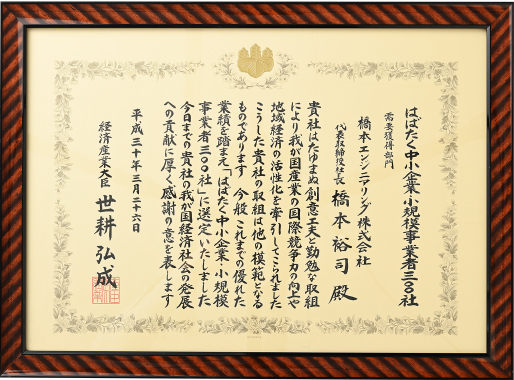 はばたく中小企業・小規模事業者三〇〇社
需要獲得部門
橋本エンジニアリング株式会社
代表取締役社長 橋本裕司殿
貴社はたゆまぬ創意工夫と勤勉な取組
により我が国産業の国際競争力の向上や
地域経済の活性化を牽引してこられました
こうした貴社の取組は他の模範となる
ものであります 今般 これまでの優れた
業績を踏まえ「はばたく中小企業・小規模
事業者三〇〇社」に選定いたしました
今日までの貴社の我が国経済社会の発展
への貢献に厚く感謝の意を表します
平成三十年三月二十六日
経済産業大臣 世耕弘成